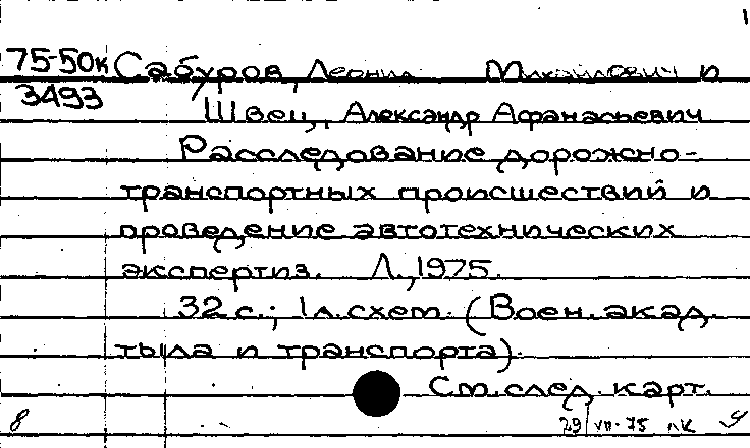 1
75-50к Сабуров, Леонид Михайлович и
3493 Швец, Александр Афанасьевич
Расследование дорожно-
транспортных происшествий и
проведение автотехнических
экспертиз. Л., 1975.
32 с.; 1 л. схем. (Воен. акад.
тыла и транспорта).
См. след. карт.
8 29/VII-75 лк